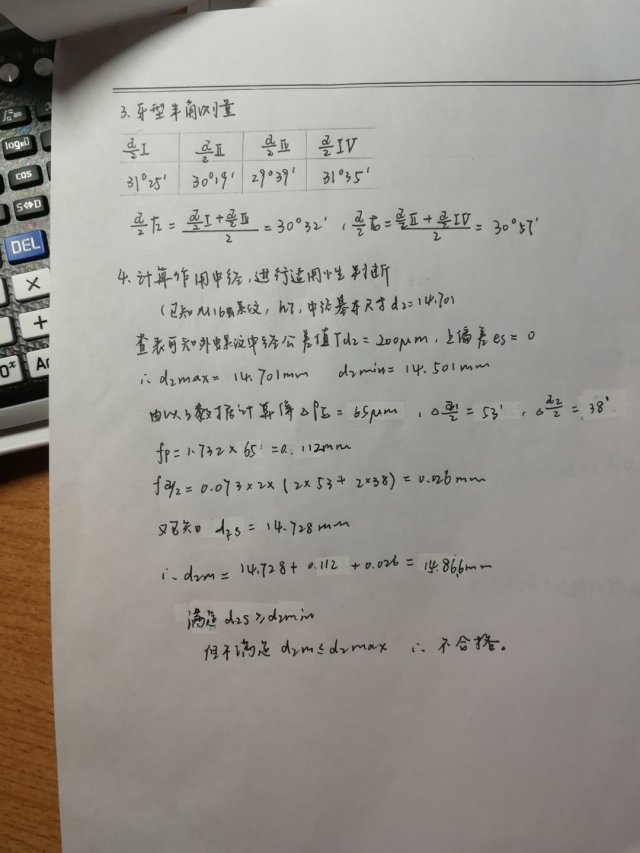 3. 牙型半角测量
α/2 I α/2 II α/2 III α/2 IV
31°25' 30°19' 29°39' 31°35'
α/2左 = (α/2 I + α/2 III)/2 = 30°32' , α/2右 = (α/2 II + α/2 IV)/2 = 30°57'
4. 计算作用中径,进行适用性判断
(已知M16螺纹, h7, 中径基本尺寸 d2=14.701
查表可知外螺纹中径公差值 Td2 = 200μm, 上偏差 es = 0
∴ d2max = 14.701mm d2min = 14.501mm
由以上数据计算得 ΔPΣ = 65μm , Δα1/2 = 53' , Δα2/2 = 38'
fp = 1.732×65 = 0.112mm
fα/2 = 0.073×2×(2×53+2×38) = 0.026mm
又已知 d2s = 14.728mm
∴ d2m = 14.728 + 0.112 + 0.026 = 14.866mm
满足 d2s ≥ d2min
但不满足 d2m ≤ d2max ∴ 不合格。
DEL
COS
S⇔D
×
+